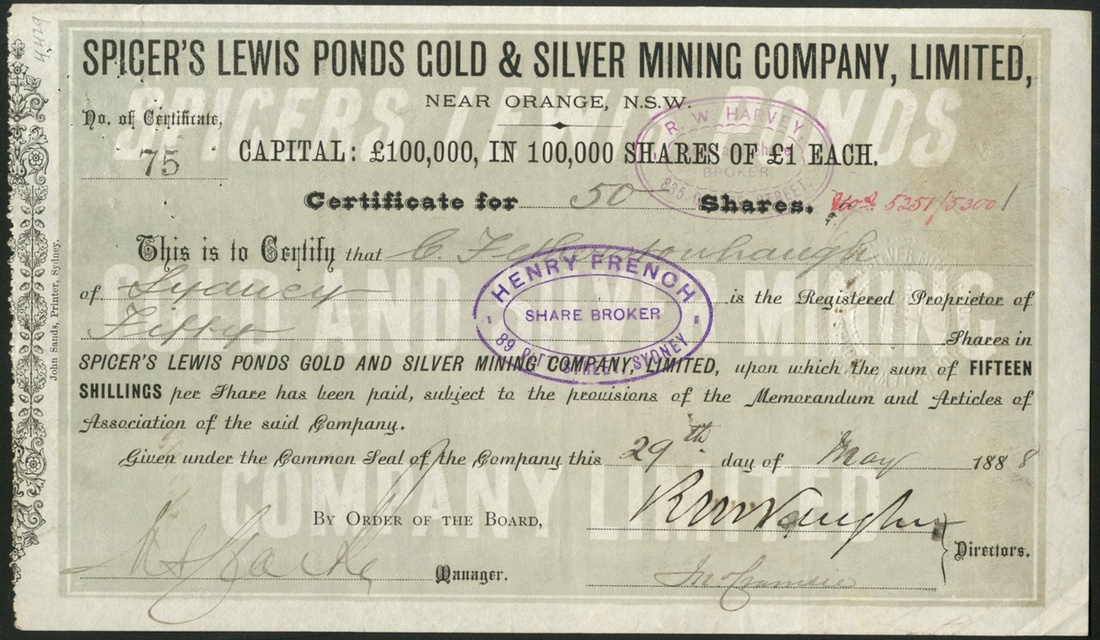 4429
SPICER'S LEWIS PONDS GOLD & SILVER MINING COMPANY, LIMITED,
NEAR ORANGE, N.S.W.
No. of Certificate,
75
CAPITAL: £100,000, IN 100,000 SHARES OF £1 EACH.
R. W. HARVEY
BROKER
STREET.
Certificate for 50 Shares. Nos. 5251/5300
This is to Certify that C. Fetherstonhaugh
of Sydney is the Registered Proprietor of
Fifty Shares in
HENRY FRENCH
SHARE BROKER
89 PITT STREET, SYDNEY
SPICER'S LEWIS PONDS GOLD AND SILVER MINING COMPANY, LIMITED, upon which the sum of FIFTEEN
SHILLINGS per Share has been paid, subject to the provisions of the Memorandum and Articles of
Association of the said Company.
Given under the Common Seal of the Company this 29th day of May 1888
BY ORDER OF THE BOARD,
Directors.
Manager.
John Sands, Printer, Sydney.
SPICERS LEWIS PONDS
GOLD AND SILVER MINING
COMPANY LIMITED